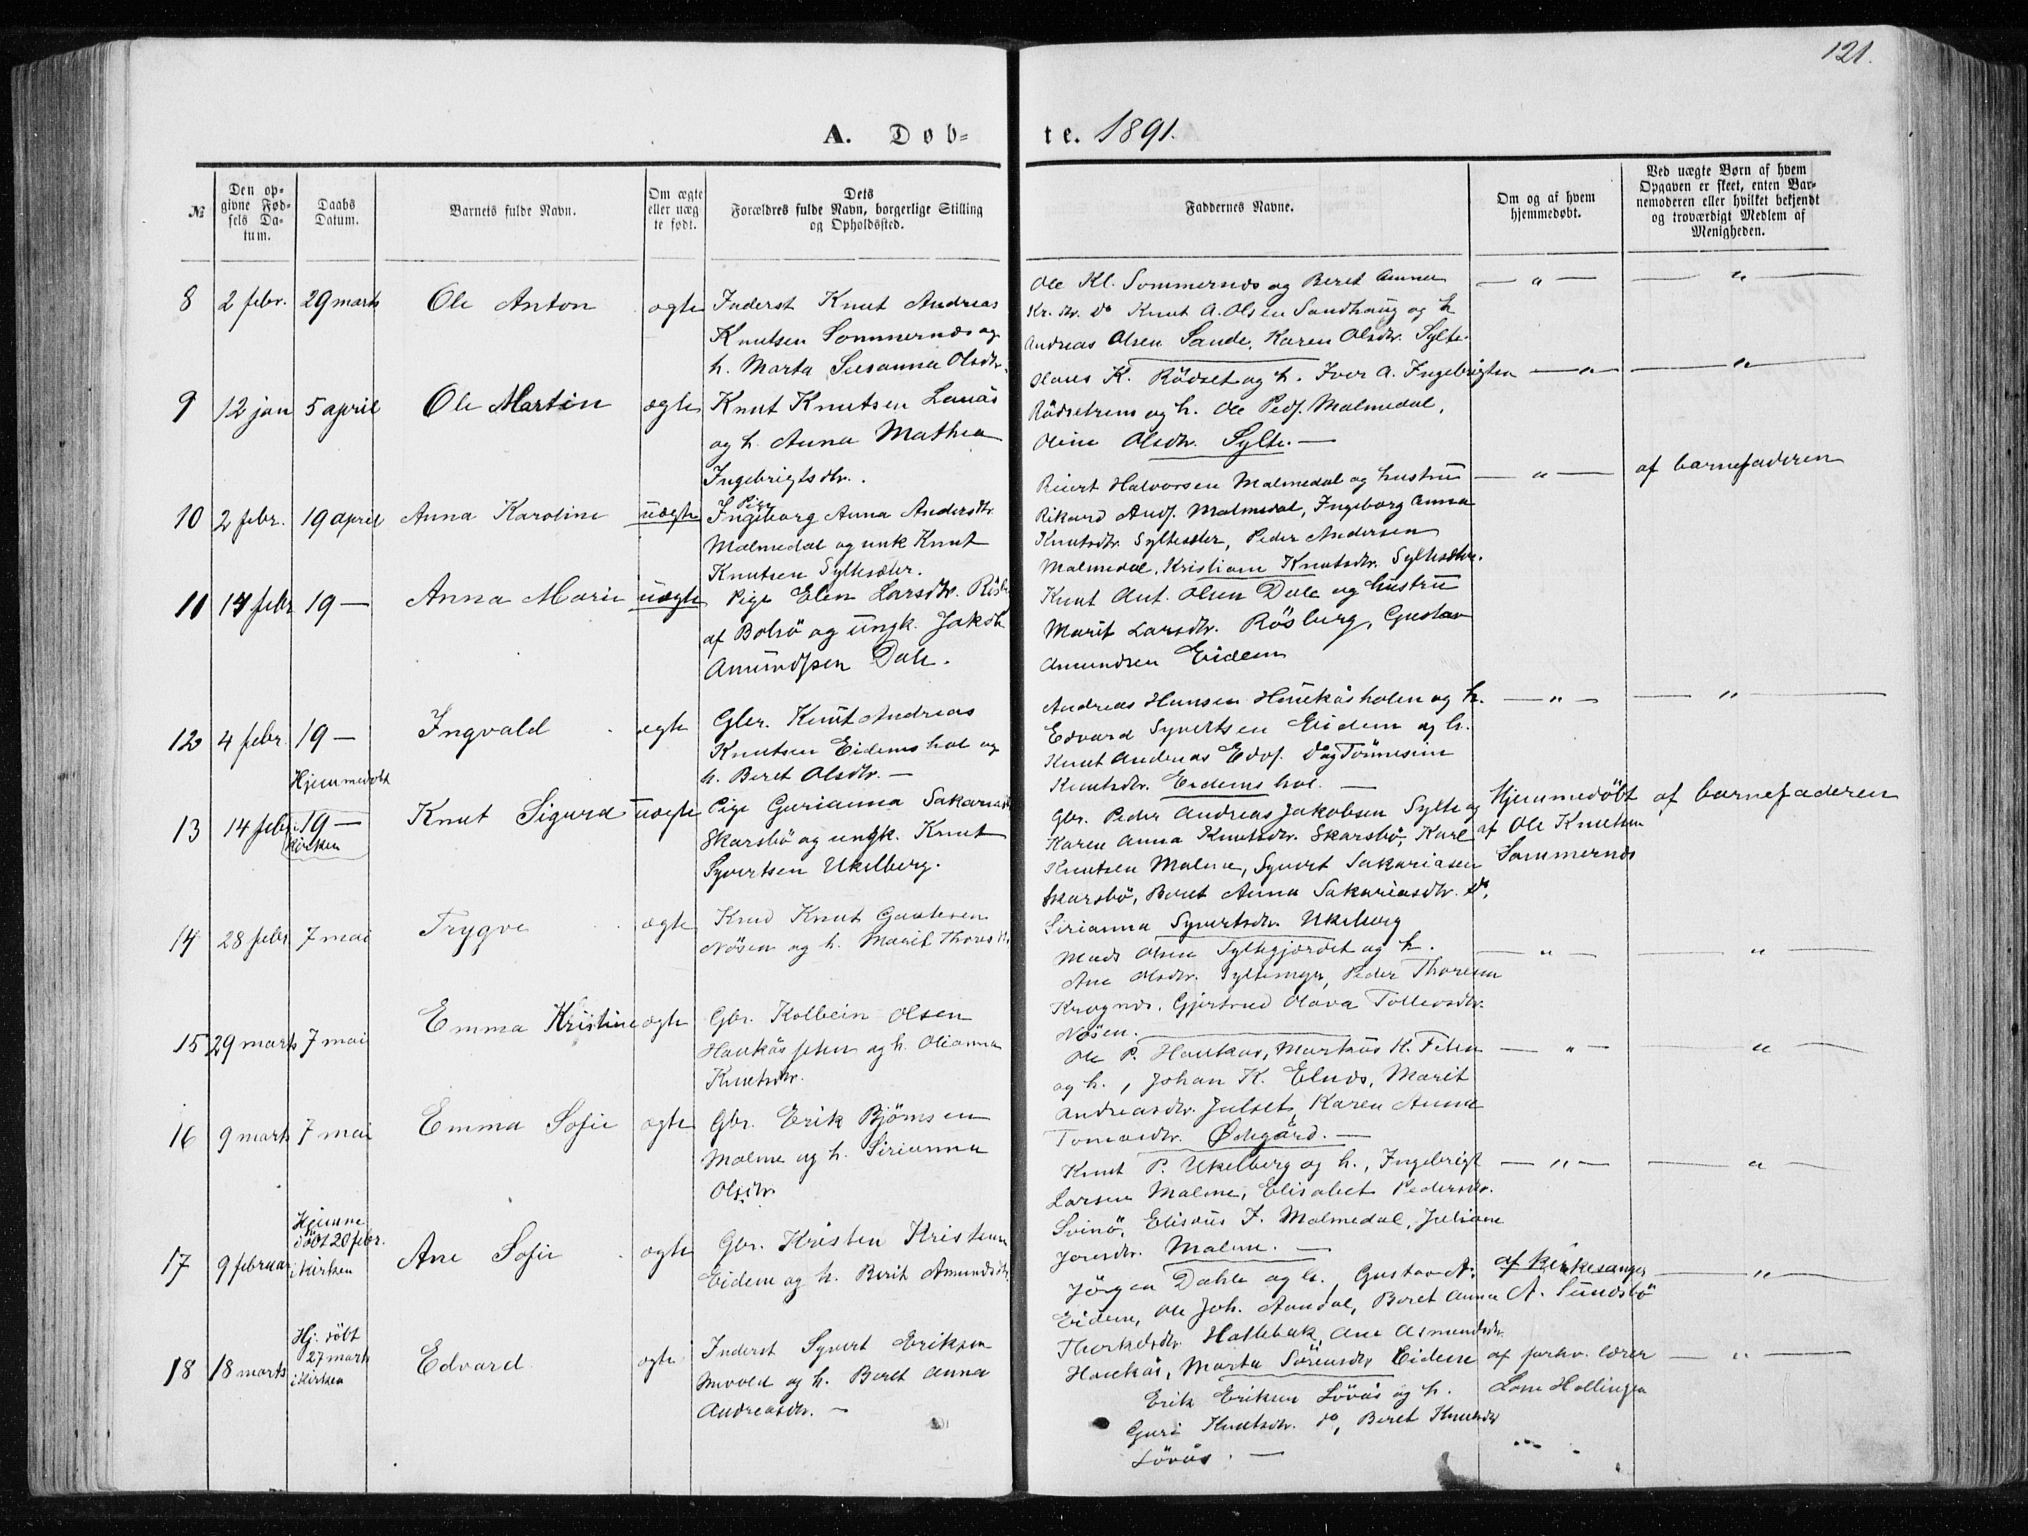 121.
A. Döb=
te. 1891.
№
Den op=
givne Fød=
sels Da=
tum.
Daabs
Datum.
Barnets fulde Navn.
Om ægte
eller uæg
te født.
Dets
Forældres fulde Navn, borgerlige Stilling
og Opholdssted.
Faddernes Navne.
Om og af hvem
hjemmedøbt.
Ved uægte Børn af hvem
Opgaven er skeet, enten Bar=
nemoderen eller hvilket bekjendt
og troværdigt Medlem af
Menigheden.
8 2 febr. 29 marts Ole Anton ægte
Inderst Knut Andreas
Knutsen Sommernæs og
h. Marta Susanna Olsdtr.
Ole Kl. Sommernæs og Beret Anna
Kr. dtr. do Knut A. Olsen Sandhaug og h
Andreas Olsen Sande, Karen Olsdtr. Sylte.
— „ — — „ —
9 12 jan 5 april Ole Martin ægte
Knut Knutsen Lanås
og h. Anna Mathea
Ingebrigtsdtr.
Hans K. Rödset og h. Iver A. Ingebrigtsen
Rödsetrems og h. Ole Peds. Malmedal,
Oline Olsdtr. Sylte. —
— „ — — „ —
10 2 febr. 19 april Anna Karoline uægte
Pige
Ingeborg Anna Andersdtr.
Malmedal og unk Knut
Knutsen Syltesæter.
Reiert Halvorsen Malmedal og hustru
Rikard Ands. Malmedal, Ingeborg Anna
Knutsdtr. Syltesæter, Peder Andersen
Malmedal, Kristiane Knutsdtr. Syltesæter.
— „ — af barnefaderen
11 14 febr 19 — Anna Marie uægte
Pige Elen Larsdtr. Rösb.
af Bolsö og ungk. Jakob
Amundsen Dale.
Knut Ant. Olsen Dale og hustru
Marit Larsdtr. Rösberg, Gustav
Amundsen Eidem
12 4 febr 19 — Ingvald ægte
Gbr. Knut Andreas
Knutsen Eidemshol og
h. Beret Olsdtr. —
Andreas Hansen Haukåsholen og h.
Edvard Syvertsen Eidem og h.
Knut Andreas Edvs. do og Tönnesine
Knutsdtr. Eidemshol. —
— „ — — „ —
Hjemmedöbt
13 14 febr. 19 — Knut Sigurd uægte
i kirken
Pige Gurianna Sakariasd
Skarsbö og ungk. Knut
Syvertsen Ukelberg.
Gbr. Peder Andreas Jakobsen Sylte og
Karen Anna Knutsdtr. Skarsbö, Karl
Knutsen Malme, Syvert Sakariasen
Skarsbö, Beret Anna Sakariasdtr. do,
Sirianna Syvertsdtr. Ukelberg
Hjemmedöbt
af Ole Knutsen
Sommernæs
af barnefaderen
14 28 febr. 7 mai Trygve ægte
Knut Gautesen
Nösen og h. Marit Thoresdtr.
Mads Olsen Syltegjærdet og h.
Ane Olsdtr. Syltemyr, Peder Thoresen
Krognæs, Gjertrud Olava Tollevsdtr.
Nösen.
— „ — — „ —
15 29 marts 7 mai Emma Kristine ægte
Gbr. Kolbein Olsen
Haukåsfeten og h. Olianna
Knutsdtr.
Ole P. Haukås, Markus K. Feten
og h., Johan K. Elnæs, Marit
Andreasdtr. Julset, Karen Anna
Tomasdtr. Ødegård. —
— „ — — „ —
16 9 marts 7 mai Emma Sofie ægte
Gbr. Erik Björnsen
Malme og h. Sirianna
Olsdtr.
Knut P. Ukelberg og h., Ingebrigt
Larsen Malme, Elisabet Pedersdtr.
Svinö, Eliseus I. Malmedal, Juliane
Jonsdtr. Malme. —
— „ — — „ —
Hjemme
döbt 20 febr.
17 9 februar i kirken Ane Sofie ægte
Gbr. Kristen Kristensen
Eidem og h. Berit Amundsdtr.
Jörgen Dahle og h. Gustav A.
Eidem, Ole Joh. Aandal, Beret Anna
Thorkelsdtr. Hatlebak, Ane Asmundsdtr.
Haukås, Marta Sörensdtr. Eidem
af kirkesanger
A. Sundsbö
— „ —
Hj. döbt
27 marts
18 18 marts i kirken Edvard ægte
Inderst Syvert Eriksen
og h. Beret Anna
Andreasdtr. —
Erik Eriksen Lövås og h.
Guri Knutsdtr. do, Beret Knutsdtr
Lövås. —
af forhv. lærer
Lars Hollingen
— „ —